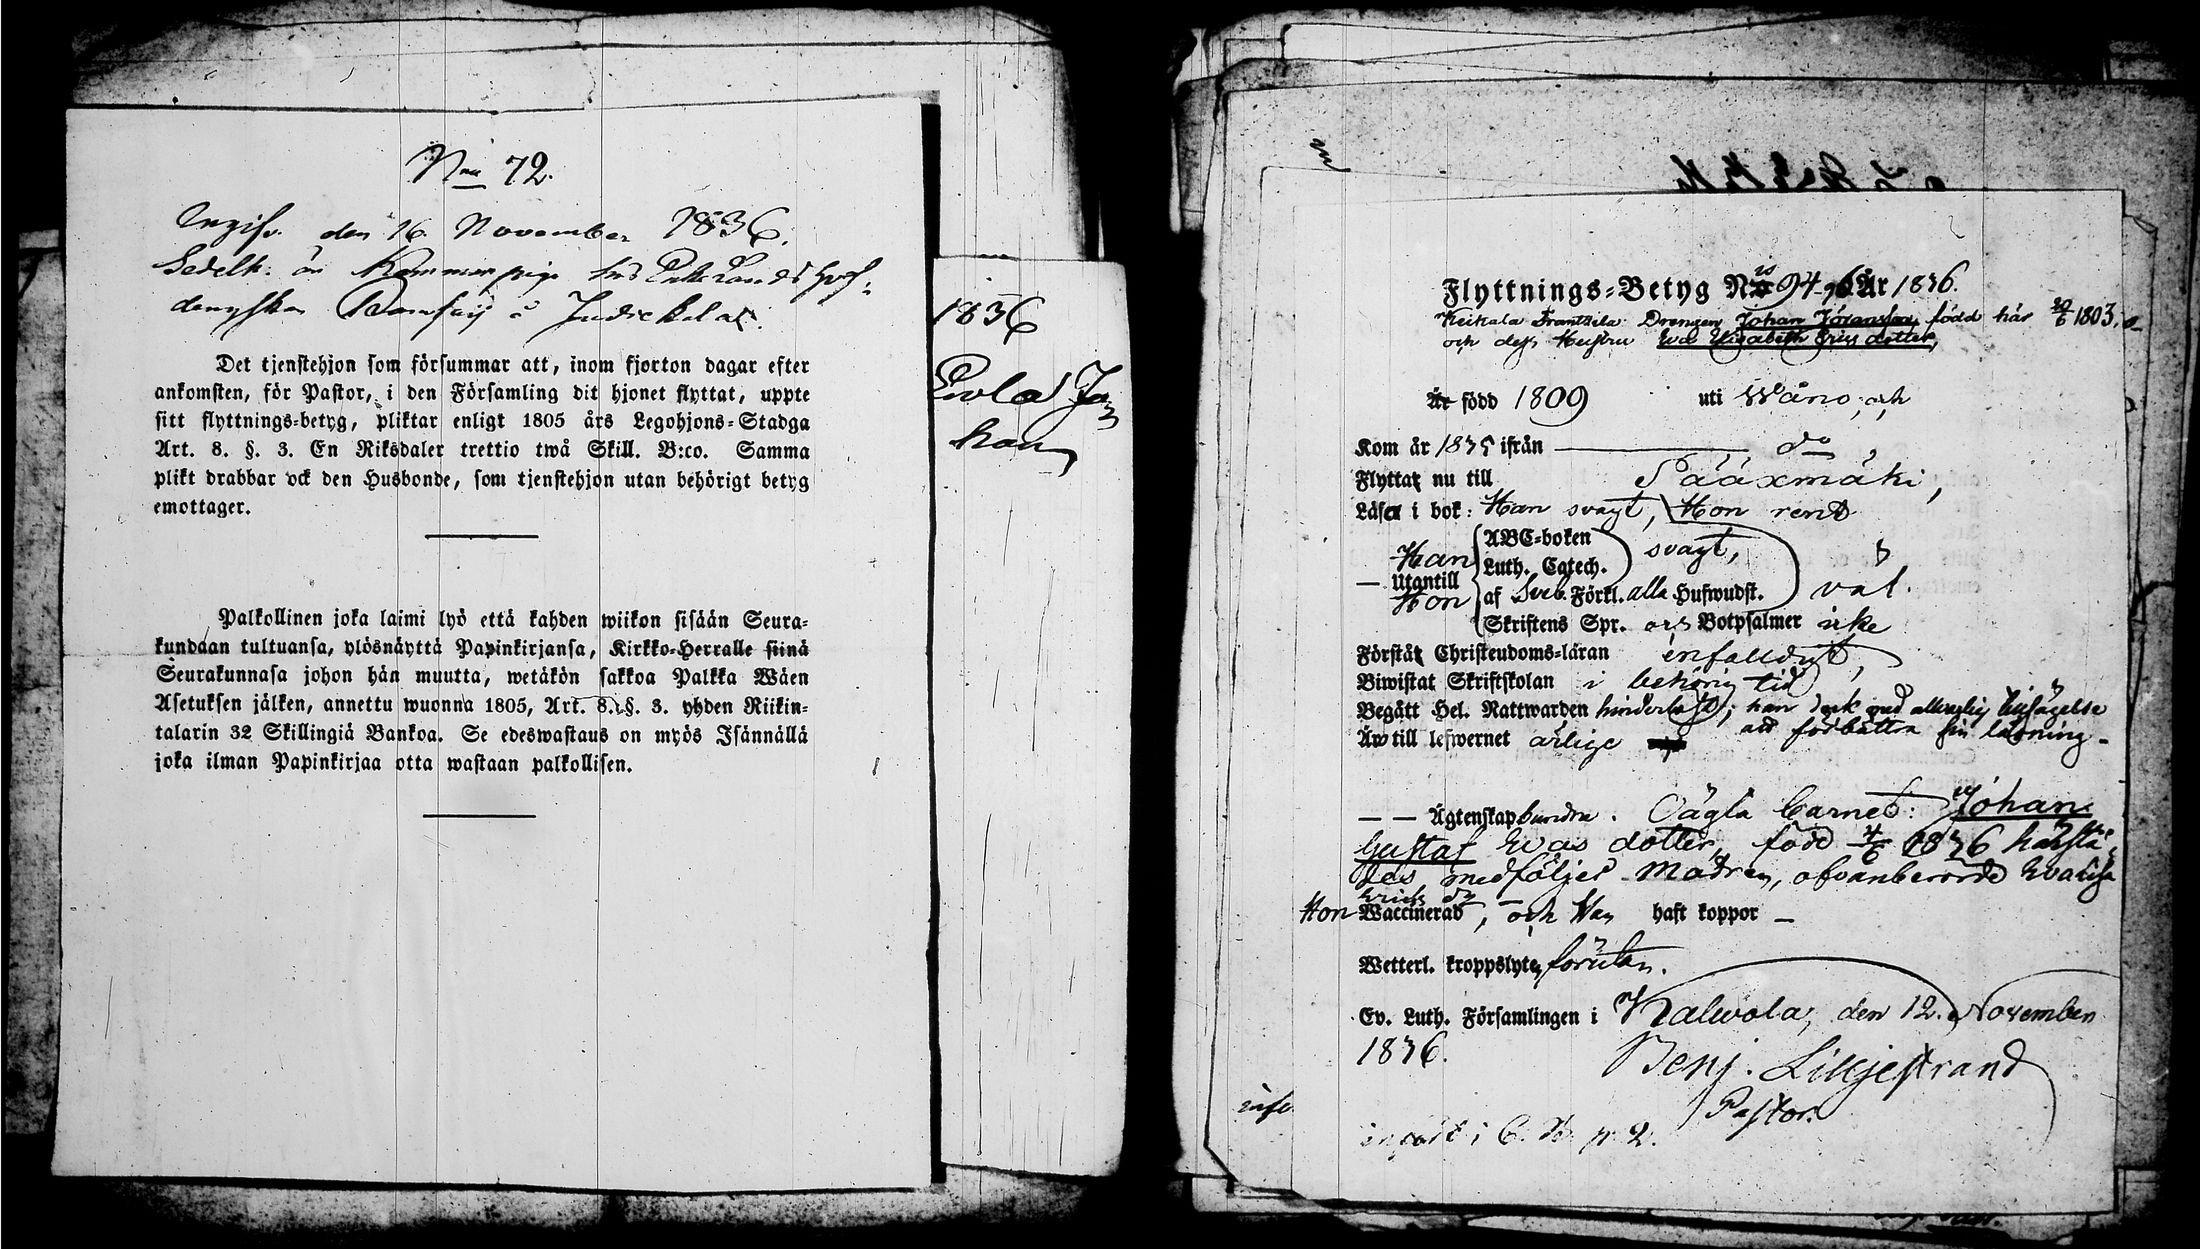 No 72.
den 16 November 1836.
Det tjenstehjon som försummar att, inom fjorton dagar efter
ankomsten, för Pastor, i den Församling dit hjonet flyttat, uppte
sitt flyttnings-betyg, pliktar enligt 1805 års Legohjons-Stadga
Art. 8. §. 3. En Riksdaler trettio twå Skill. B:co. Samma
plikt drabbar ock den Husbonde, som tjenstehjon utan behörigt betyg
emottager.
Palkollinen joka laimi lyö että kahden wiikon sisään Seura-
kundaan tultuansa, ylösnäyttä Papinkirjansa, Kirkko-Herralle siinä
Seurakunnasa johon hän muutta, wetäkön sakkoa Palkka Wäen
Asetuksen jälken, annettu wuonna 1805, Art. 8. §. 3. yhden Riikin-
talarin 32 Skillingiä Bankoa. Se edeswastaus on myös Isännällä
joka ilman Papinkirjaa otta wastaan palkollisen.
1836
Flyttnings-Betyg No 94-96 År 1836.
Keikala Frantsila Drengen Johan Jöransson, född här 30/6 1803,
och dess Hustru Eva Elisabeth Ericsdotter,
Är född 1809 uti Wåno, och
Kom år 1835 ifrån do
Flyttar nu till Sääxmäki,
Läsa i bok: Han svagt, Hon rent
Han ABC-boken svagt,
Utantill Luth. Catech.
Hon af Sveb. Förkl. alla Hufwudst. väl.
Skriftens Spr. ors Botpsalmer icke
Förstår Christendoms-läran enfaldigt,
Biwistat Skriftskolan i behörig tid
Begått Hel. Nattwarden hinderlöst; han dock med allvarlig tillsägelse
att förbättra sin läsning.
Äro till lefwernet ärlige
Ägtenskap bundna. Oägta barnet: Johan
Gustaf Evas dotter, född 4/6 1836 härstä-
des medföljer Modren, ofvanberörde Eva Lisa
Erics dr
Hon Waccinerad, och Han haft koppor
Wetterl. kroppslyte förutan.
Ev. Luth. Församlingen i Kalvola, den 12. November
1836.
Benj. Lilljestrand
Pastor.
införd i C. B. p. 2.